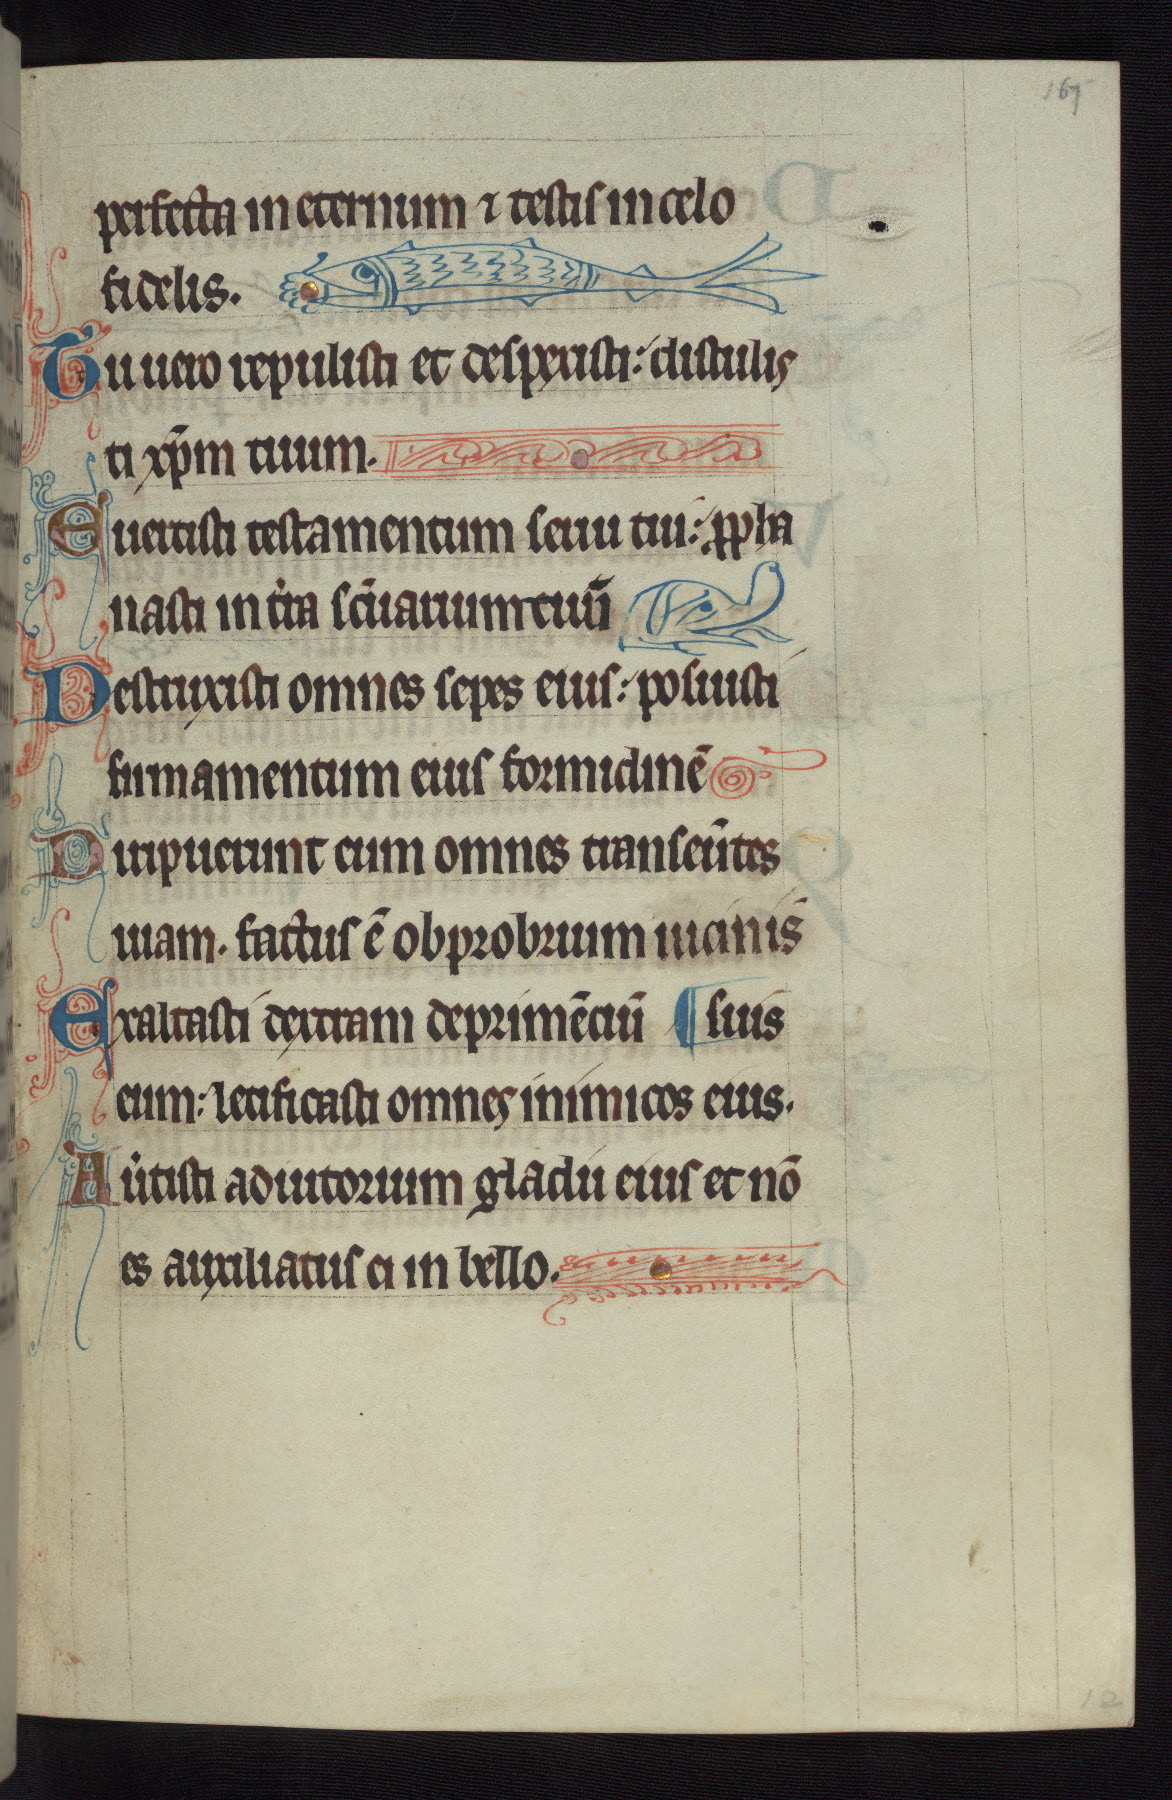 167
perfecta in eternum ⁊ testis in celo
fidelis.
Tu uero repulisti et despexisti: distulis
ti xp̄m tuum.
Euertisti testamentum serui tui: ꝓpha
nasti in tr̃a sc̄uarium tuū
Destruxisti omnes sepes eius: posuisti
firmamentum eius formidinē
Diripuerunt eum omnes transeūtes
uiam. factus ē obprobrium uicinis
Exaltasti dextram deprimētiū ¶ suis
eum: letificasti omnes inimicos eius.
Aủtisti adiutorium gladii eius et nō
es auxiliatus ei in bello.
12